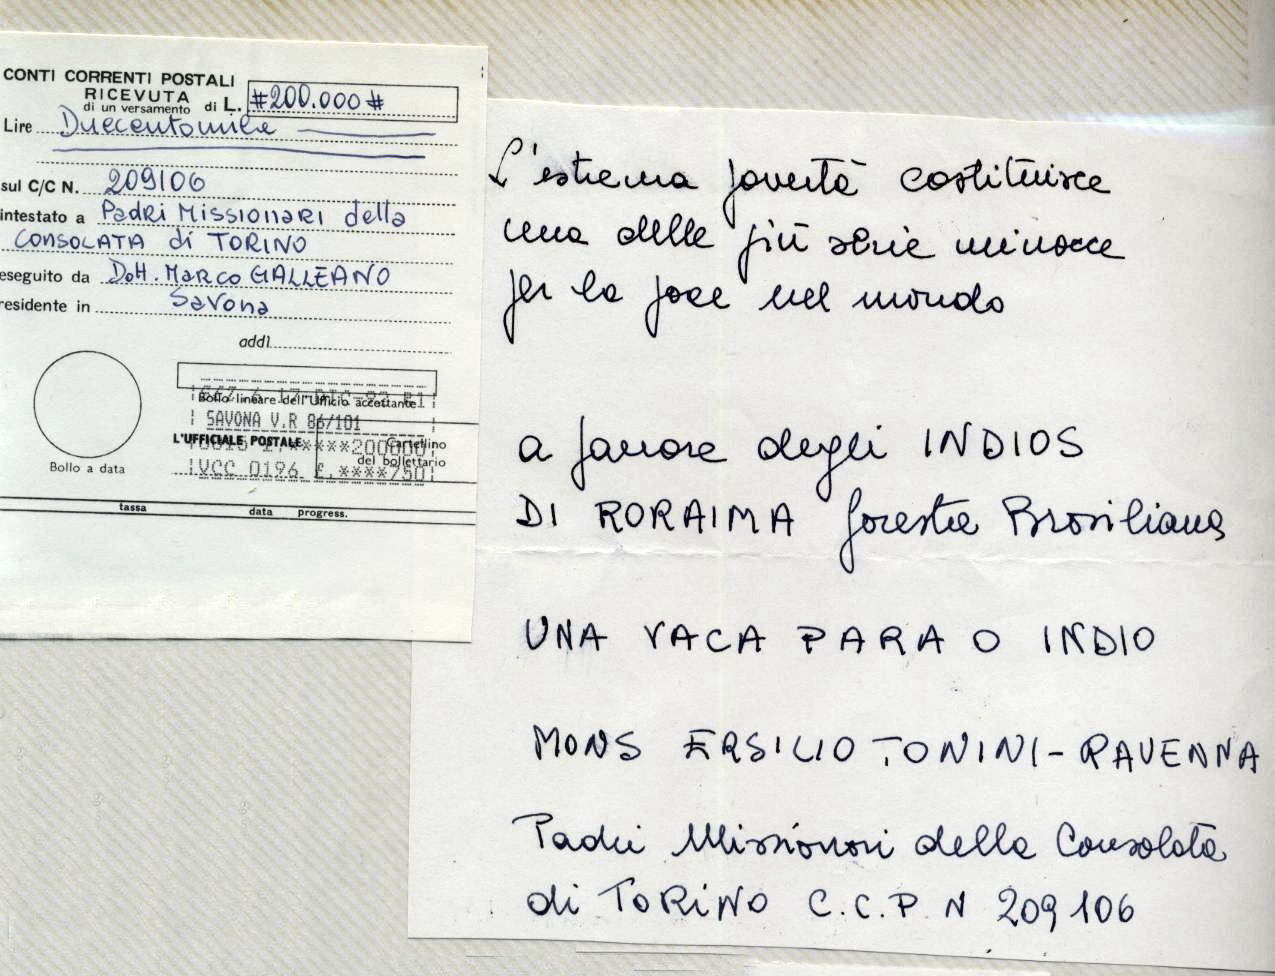 CONTI CORRENTI POSTALI
RICEVUTA
di un versamento di L. #200.000#
Lire Duecentomila
sul C/C N. 209106
intestato a Padri Missionari della
Consolata di TORINO
eseguito da Dott. Marco GALLEANO
residente in Savona
addì
Bollo lineare dell'Ufficio accettante
SAVONA V.R 86/101
L'UFFICIALE POSTALE
Cartellino
del bollettario
****200000
VCC 0196 £.****750
Bollo a data
tassa data progress.
L'estrema povertà costituisce
una delle più serie minacce
per la pace nel mondo
a favore degli INDIOS
DI RORAIMA foresta Brasiliana
UNA VACA PARA O INDIO
MONS ERSILIO TONINI - RAVENNA
Padri Missionari della Consolata
di TORINO C.C.P N 209106